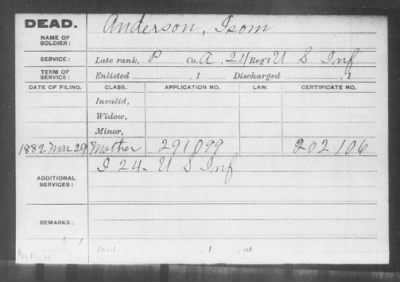 DEAD.
NAME OF SOLDIER: Anderson, Isom
SERVICE: Late rank, P Co. A, 24 Reg't U S Inf
TERM OF SERVICE: Enlisted , 1 Discharged , 1
DATE OF FILING. CLASS. APPLICATION NO. LAW. CERTIFICATE NO.
Invalid,
Widow,
Minor,
1882 Mar 29 Mother 291,099 202,106
ADDITIONAL SERVICES: I 24 - U S Inf
REMARKS: